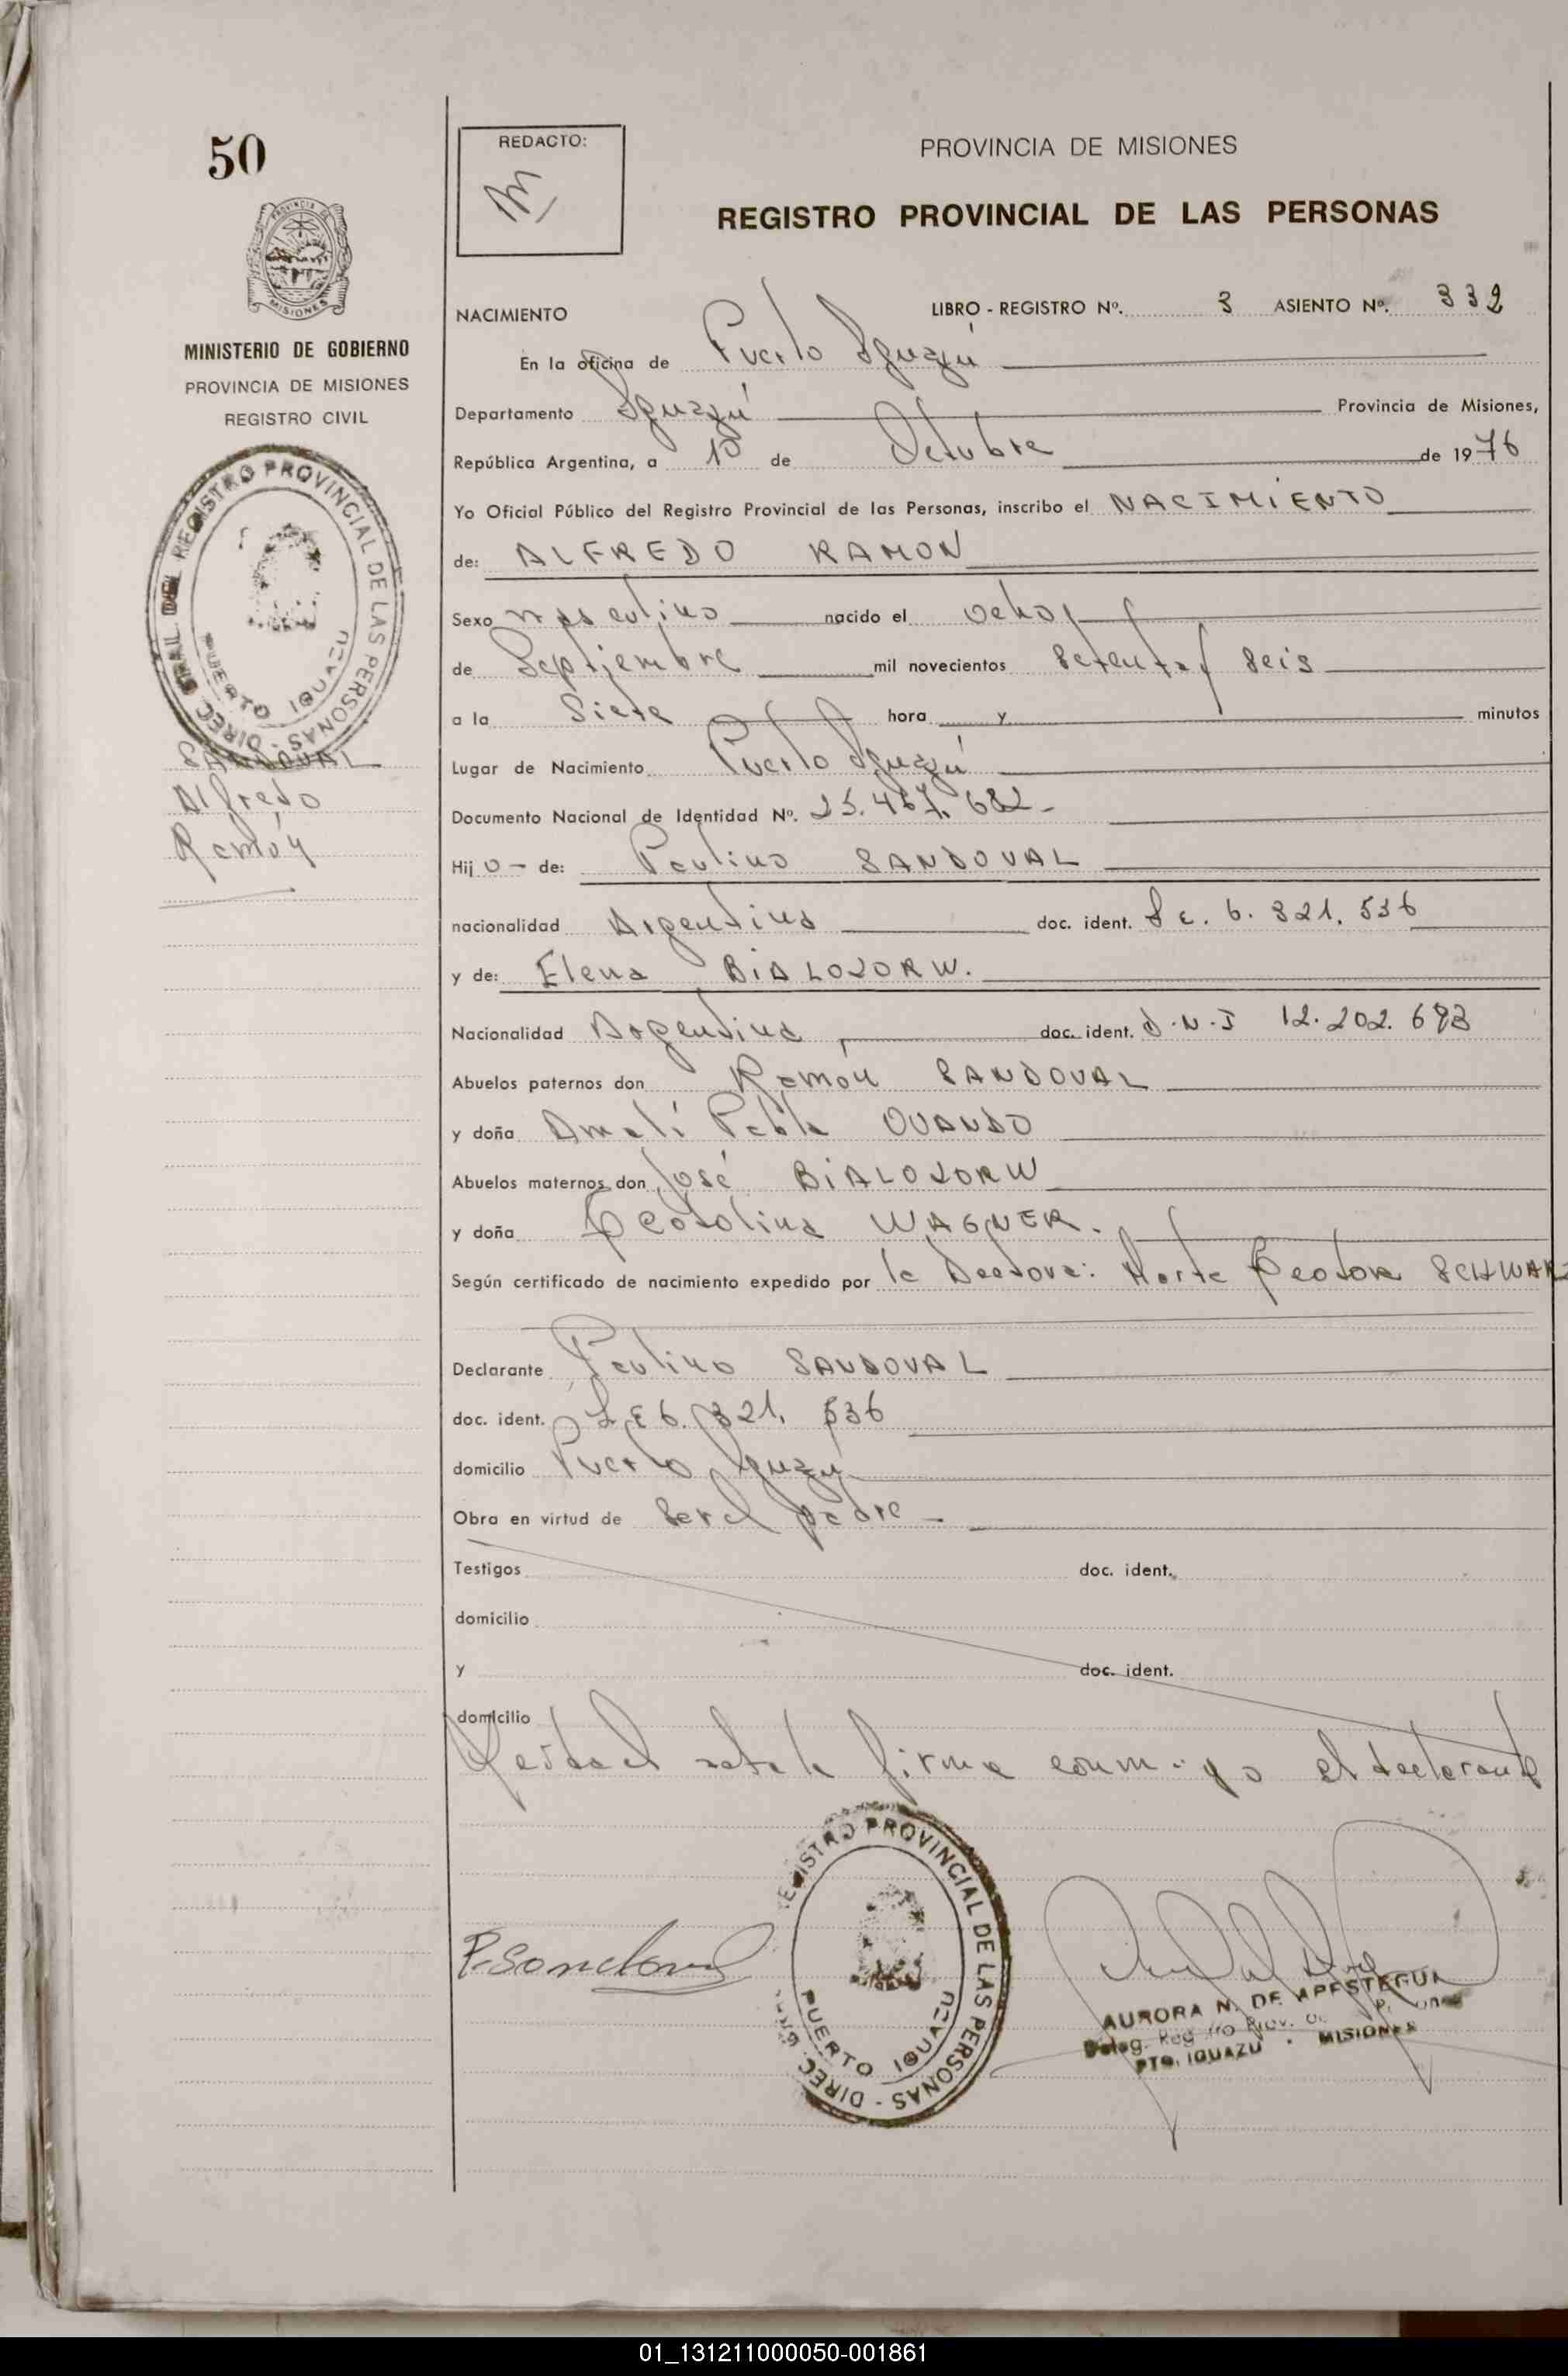 50
REDACTO:
PROVINCIA DE MISIONES
REGISTRO PROVINCIAL DE LAS PERSONAS
PROVINCIA DE MISIONES
MINISTERIO DE GOBIERNO
PROVINCIA DE MISIONES
REGISTRO CIVIL
DIREC. GRAL DEL REGISTRO PROVINCIAL DE LAS PERSONAS -
PUERTO IGUAZU
SANDOVAL
Alfredo
Ramón
NACIMIENTO LIBRO - REGISTRO Nº. 3 ASIENTO Nº. 332
En la oficina de Puerto Iguazú
Departamento Iguazú Provincia de Misiones,
República Argentina, a 1º de Octubre de 1976
Yo Oficial Público del Registro Provincial de las Personas, inscribo el NACIMIENTO
de: ALFREDO RAMON
Sexo masculino nacido el ocho
de Septiembre mil novecientos setenta y seis
a la Siete hora y minutos
Lugar de Nacimiento Puerto Iguazú
Documento Nacional de Identidad Nº. 25.467.682-
Hijo - de: Paulino SANDOVAL
nacionalidad Argentina doc. ident. L E. 6. 321. 536
y de: Elena BIALOZORW.
Nacionalidad Argentina doc. ident. D.N.I 12.202.693
Abuelos paternos don Ramón SANDOVAL
y doña Pabla OVANDO
Abuelos maternos don José BIALOZORW
y doña Teodolina WAGNER.
Según certificado de nacimiento expedido por la Doctora: Marta Teodora SCHWARZ
Declarante Paulino SANDOVAL
doc. ident. L E 6. 321. 536
domicilio Puerto Iguazú
Obra en virtud de ser el padre -
Testigos doc. ident.
domicilio
y doc. ident.
domicilio
Leída el acta la firma conmigo el declarante
P. Sandoval
DIREC. GRAL REGISTRO PROVINCIAL DE LAS PERSONAS -
PUERTO IGUAZU
AURORA N. DE APESTEGUI
Deleg. Reg Prov.
PTO. IGUAZU - MISIONES
01_131211000050-001861